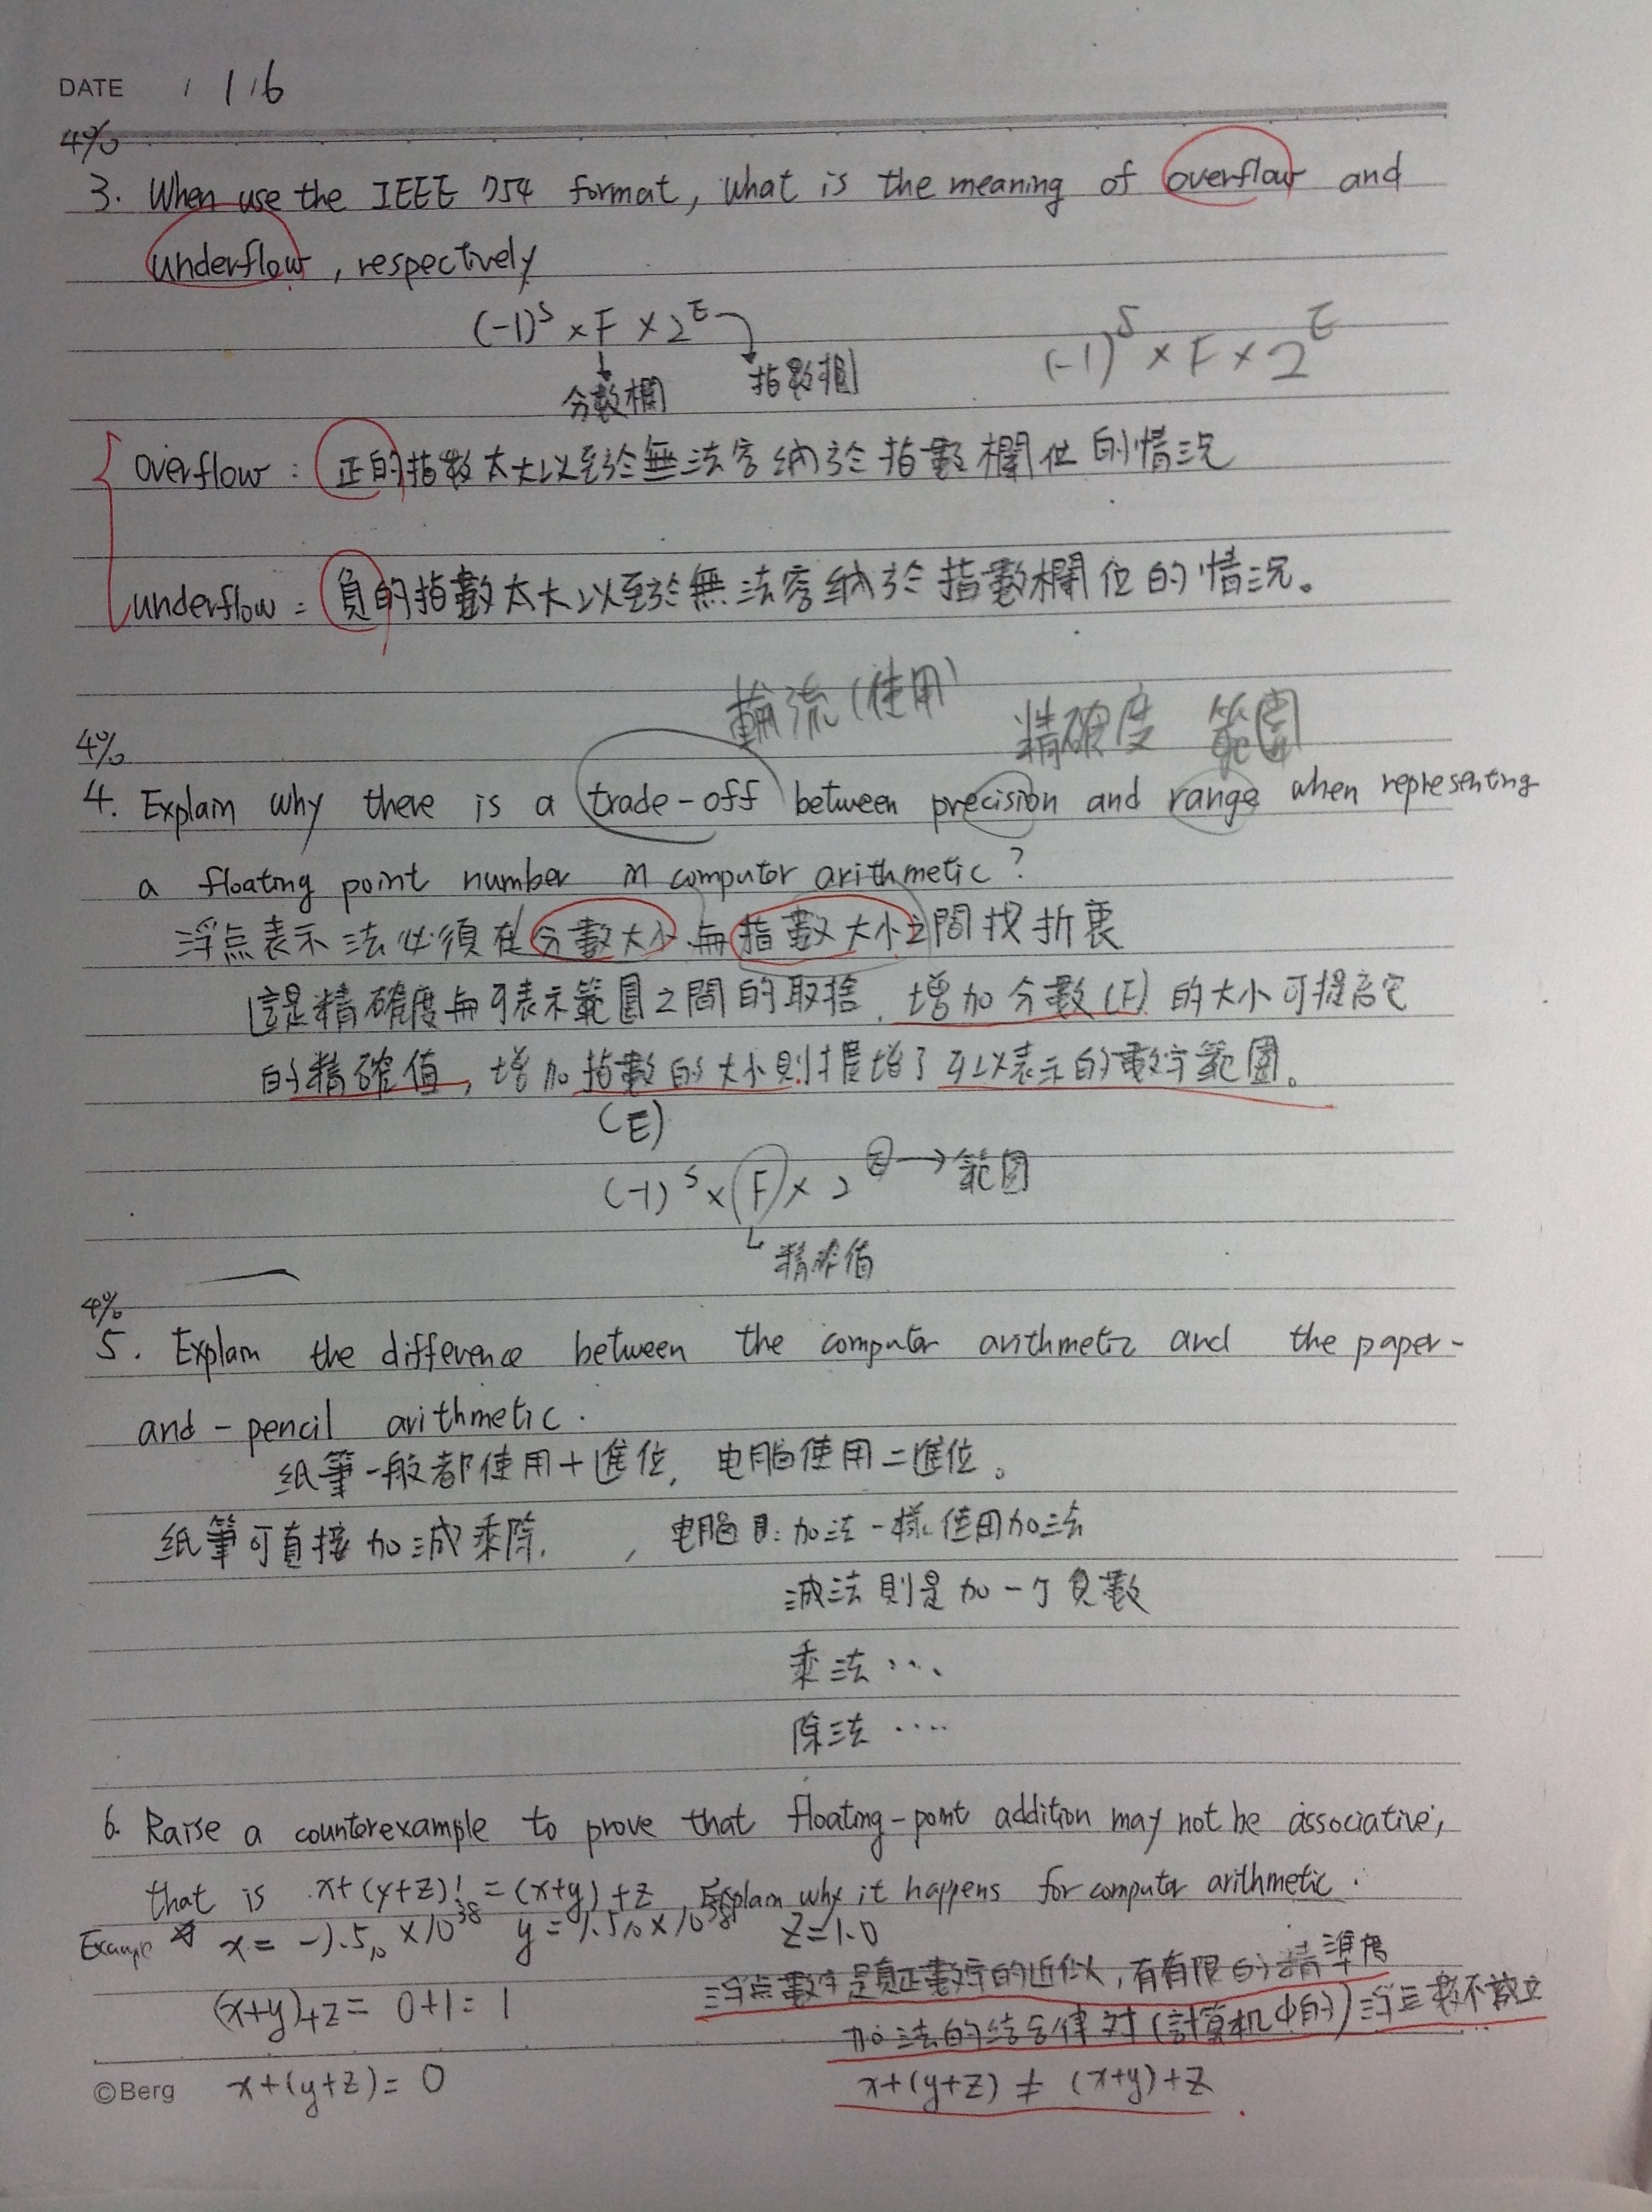 DATE / 1 / 6
4%
3. When use the IEEE 754 format, what is the meaning of overflow and
underflow, respectively
(-1)^S × F × 2^E
(-1)^S × F × 2^E
分數欄
指數欄
overflow: 正的指數太大以至於無法容納於指數欄位的情況
underflow = 負的指數太大以至於無法容納於指數欄位的情況。
輪流(使用)
精確度 範圍
4%
4. Explain why there is a trade-off between precision and range when representing
a floating point number in computer arithmetic?
浮点表示法必須在分數大小與指數大小之間找折衷
這是精確度與可表示範圍之間的取捨. 增加分數(F)的大小可提高它
的精確值, 增加指數的大小則提增了可以表示的數字範圍。
(E)
(-1)^S × F × 2^E → 範囝
精准值
4%
5. Explain the difference between the computer arithmetic and the paper-
and-pencil arithmetic.
纸筆一般都使用十進位, 电腦使用二進位。
纸筆可直接加減乘除. , 电腦 : 加法一樣使用加法
減法則是加一个負數
乘法...
除法....
6. Raise a counterexample to prove that floating-point addition may not be associative,
that is x+(y+z)!=(x+y)+z Explain why it happens for computer arithmetic.
Example x = -1.5₁₀ × 10^38 y = 1.5₁₀ × 10^38 z=1.0
浮点數字是真正數字的近似, 有有限的精準度
(x+y)+z = 0+1 = 1
加法的结合律对(計算机中的)浮点數不成立
©Berg x+(y+z) = 0
x+(y+z) ≠ (x+y)+z